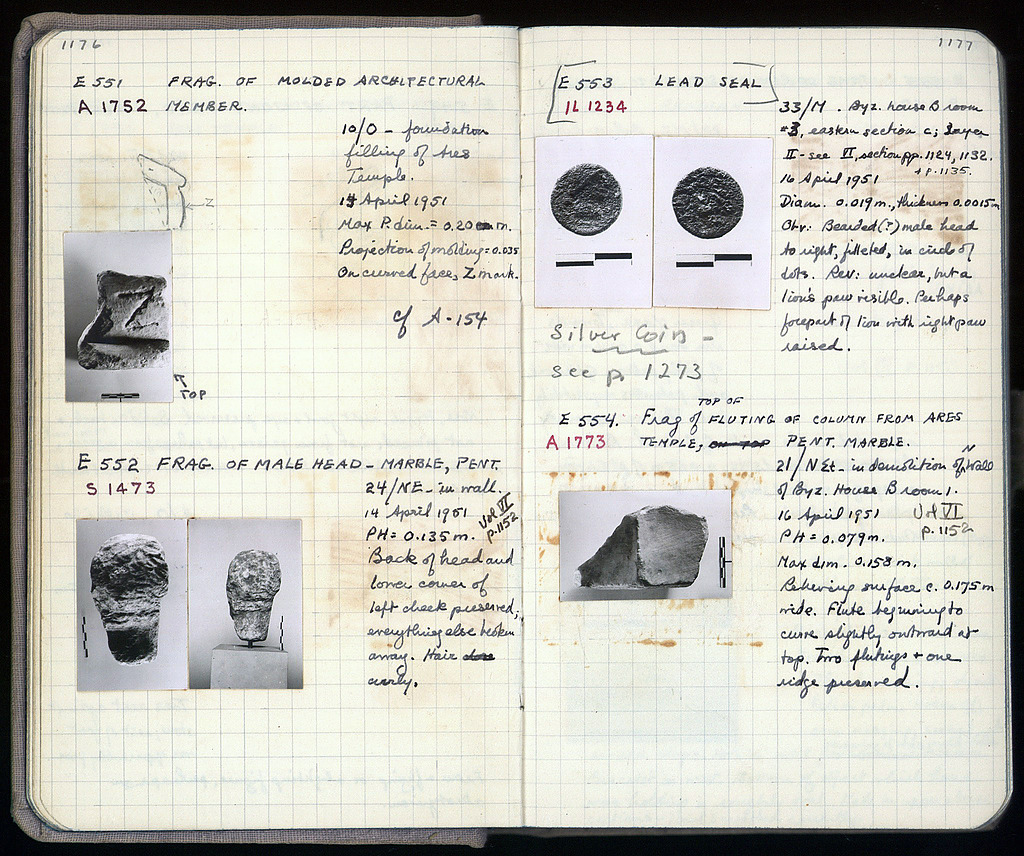 1176
E 551 FRAG. OF MOLDED ARCHITECTURAL
A 1752 MEMBER.
10/O - foundation
filling of Ares
Temple.
April 1951
Max P. dim. = 0.20 m.
Projection of molding = 0.035
On curved face, Z mark.
cf A-154
Z
TOP
E 552 FRAG. OF MALE HEAD - MARBLE, PENT.
S 1473
24/NE - in wall.
14 April 1951
Vol VI
p. 1152
PH = 0.135 m.
Back of head and
lower corner of
left cheek preserved;
everything else broken
away. Hair
curly.
1177
E 553 LEAD SEAL
IL 1234
33/M. Byz. house B room
#3, eastern section c; layer
II - see VI, section pp. 1124, 1132.
+ p. 1135.
16 April 1951
Diam. 0.019 m., thickness 0.0015 m
Obv: Bearded (?) male head
to right, filleted, in circle of
dots. Rev: unclear, but a
lion's paw visible. Perhaps
forepart of lion with right paw
raised.
Silver Coin -
see p. 1273
TOP OF
E 554. Frag of FLUTING OF COLUMN FROM ARES
A 1773 TEMPLE, PENT. MARBLE.
21/N Et - in demolition of N Wall
of Byz. House B room 1.
16 April 1951
Vol VI
p. 1152
PH = 0.079 m.
Max dim. 0.158 m.
surface c. 0.175 m
wide. Flute beginning to
curve slightly outward at
top. Two flutings + one
ridge preserved.